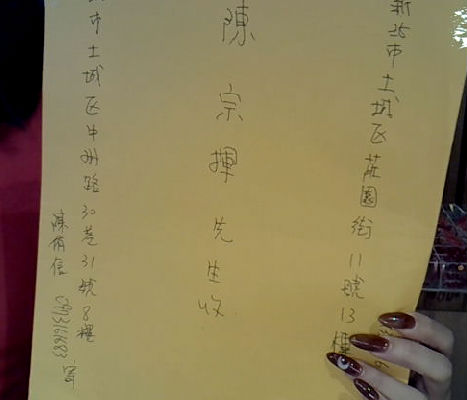 新北市土城区莊園街11號13樓
陳宗揮先生收
市土城区中州路30巷31號8樓
陳侑信 寄